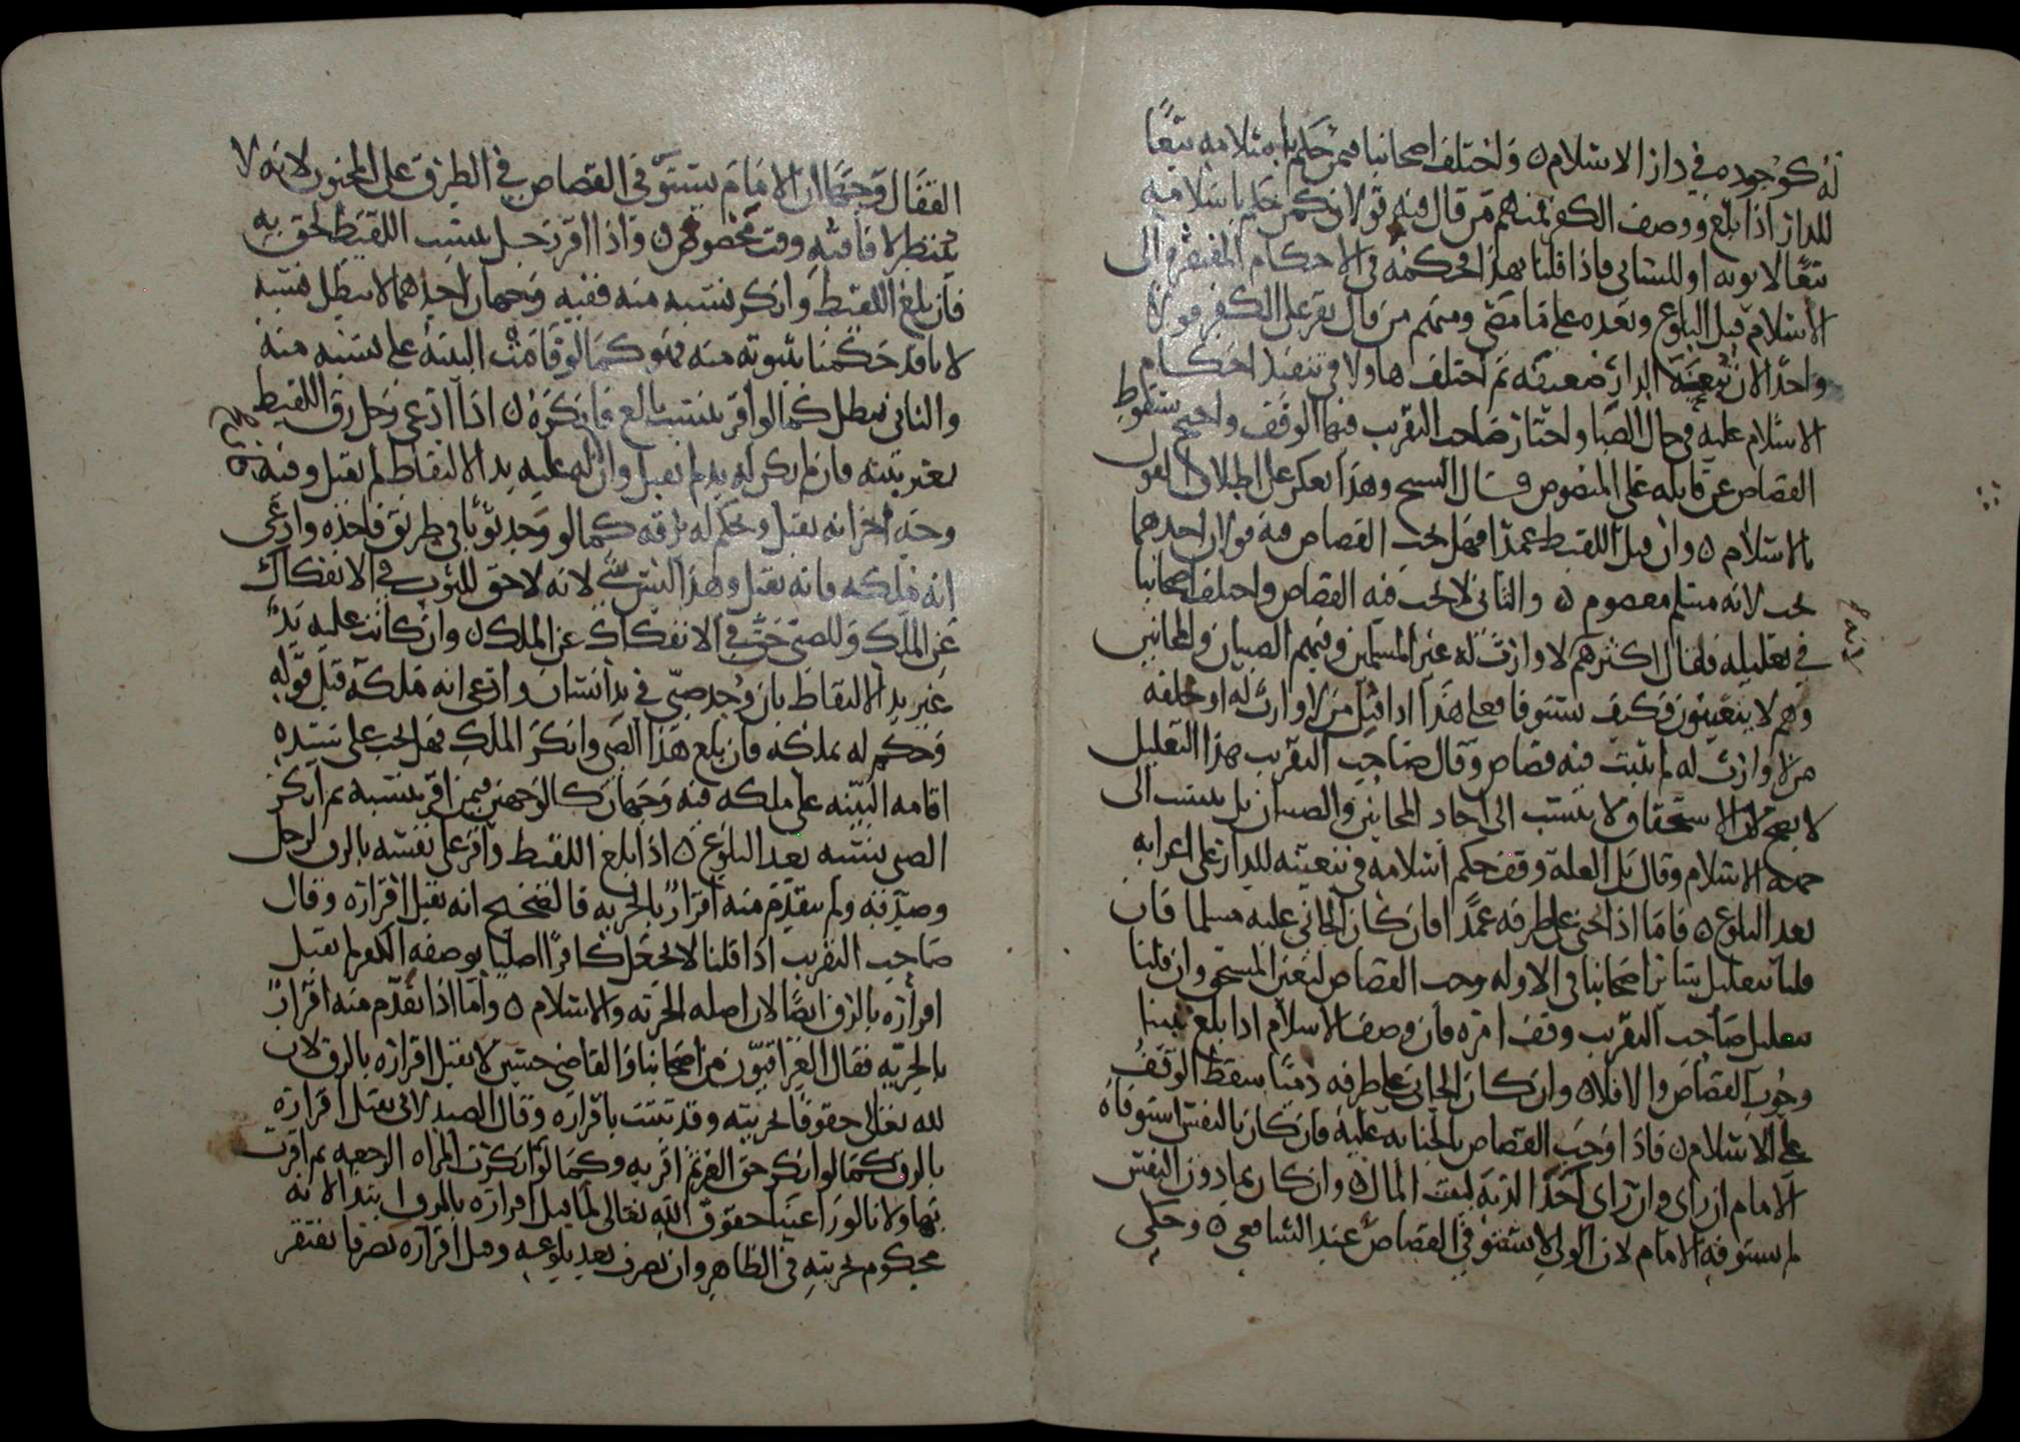 له كوجوده في دار الاسلام ٥ واختلف اصحابنا فيمن حكم باسلامه تبعًا
للدار اذا بلغ ووصف الكفر فمنهم من قال فيه قولان كمن حكم باسلامه
تبعًا لابويه او للسابي فاذا قلنا بهذا فحكمه في الاحكام المفتقرة الى
الاسلام قبل البلوغ وبعده على ما مضى ومنهم من قال يقر على الكفر قولا
واحدًا لان تبعية الدار ضعيفة ثم اختلف هاولا في تنفيذ احكام
الاسلام عليه في حال الصبا واختار صاحب التقريب فيها الوقف واحتج بسقوط
القصاص عن قاتله على المنصوص قال الشيخ وهذا يعكر على اطلاق القول
بالاسلام ٥ وان قتل اللقيط عمدًا فهل يجب القصاص فيه قولان احدهما
يجب لانه مسلم معصوم ٥ والثاني لا يجب فيه القصاص واختلف اصحابنا
في تعليله فقال اكثرهم لا وارث له غير المسلمين وفيهم الصبيان والمجانين
وهم لا يتعينون فكيف يستوفا فعلى هذا اذا قتل من لا وارث له او خلفه
من لا وارث له لم يثبت فيه قصاص وقال صاحب التقريب هذا التعليل
لا يصح لان الاستحقاق لا ينسب الى احاد المجانين والصبيان بل ينسب الى
جهة الاسلام وقال بل العلة وقف حكم اسلامه في تبعيته للدار على اعرابه
بعد البلوغ ٥ فاما اذا جني على طرفه عمدًا فان كان الجاني عليه مسلما فان
قلنا بتعليل سائر اصحابنا في الاوله وجب القصاص لتعين المستحق وان قلنا
بتعليل صاحب التقريب وقف امره فان وصف الاسلام اذا بلغ تبينا
وجوب القصاص والا فلا ٥ وان كان الجاني على طرفه ذميًا سقط الوقف
على الاسلام ٥ فاذا وجب القصاص بالجنايه عليه فان كان بالنفس استوفاه
الامام ان راى وان راى اخذ الدية لبيت المال ٥ وان كان بما دون النفس
لم يستوفه الامام لان الولي لا يستوفي القصاص عند الشافعي ٥ وحكى
القفال وجهًا ان الامام يستوفي القصاص في الطرف على المجنون لانه لا
ينتظر لافاقته وقت مخصوص ٥ واذا اقر رجل بنسب اللقيط لحق به
فان بلغ اللقيط وانكر نسبه منه ففيه وجهان احدهما لا يبطل نسبه
لانا قد حكمنا بثبوته منه فهو كما لو قامت البينة على نسبه منه
والثاني يبطل كما لو اقر بنسب بالغ فانكره ٥ اذا ادعى رجل رق اللقيط
بغير بينه فان لم يكن له يد لم يقبل وان له عليه يد الالتقاط لم يقبل وفيه
وجه اخر انه يقبل ويحكم له برقه كما لو وجد ثوبًا في طريق فاخذه وادعى
انه ملكه فانه يقبل وهذا ليس بشي لانه لا حق للثوب في الانفكاك
عن الملك وللصبي حق في الانفكاك عن الملك ٥ وان كانت عليه يدٌ
غير يد الالتقاط بان وجد صبي في يد انسان وادعى انه ملكه قبل قوله
وحكم له بملكه فان بلغ هذا الصبي وانكر الملك فهل يجب على سيده
اقامه البينه على ملكه فيه وجهان كالوجهين فيمن اقر بنسبه ثم انكر
الصبي بنسبه بعد البلوغ ٥ اذا بلغ اللقيط واقر على نفسه بالرق لرجل
وصدقه ولم يتقدم منه اقرارٌ بالحريه فالصحيح انه يقبل اقراره وقال
صاحب التقريب اذا قلنا لا يجعل كافرًا اصليًا بوصفه الكفر لم يقبل
اقراره بالرق ايضًا لان اصله الحريه والاسلام ٥ واما اذا تقدم منه اقرارٌ
بالحريه فقال العراقيون من اصحابنا والقاضي حسين لا يقبل اقراره بالرق لان
لله تعالى حقوقًا بحريته وقد تثبت باقراره وقال الصيدلاني يقبل اقراره
بالرق كما لو انكر حق الغير ثم اقر به وكما لو انكرت المراه الرجعه ثم اقرت
بها ولانا لو راعينا حقوق الله تعالى لما قبل اقراره بالرق ابتدا لانه
محكوم بحريته في الظاهر وان تصرف بعد بلوغه وقبل اقراره تصرفا يفتقر